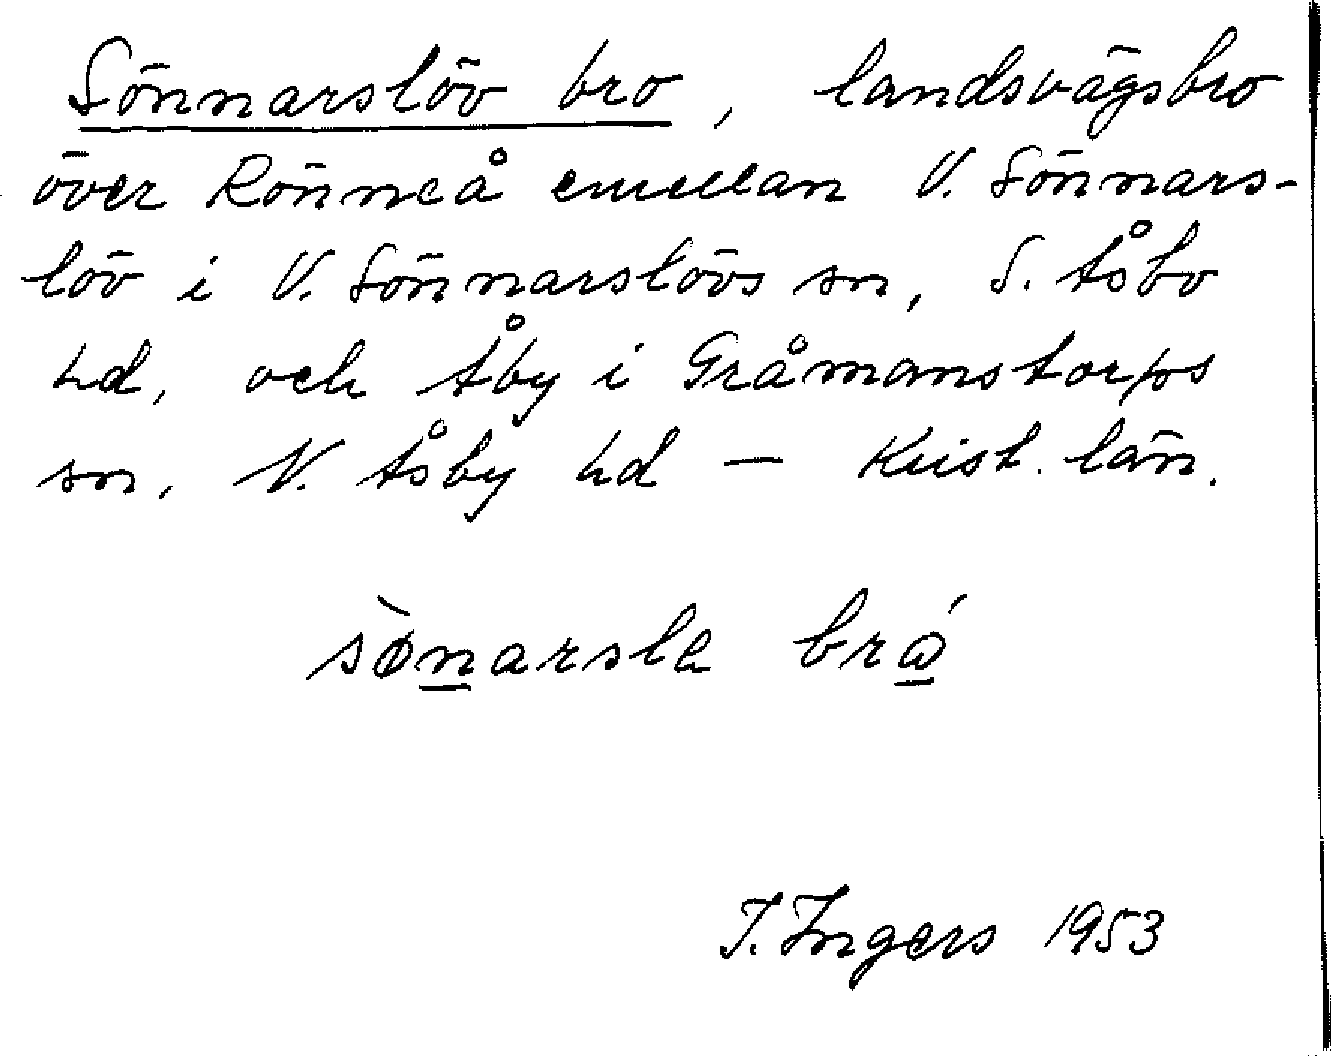 Sönnarslöv bro, landsvägsbro
över Rönneå emellan V. Sönnars-
löv i V. Sönnarslövs sn, S. Åsbo
hd, och Åby i Gråmanstorps
sn, N. Åsby hd – Krist. län.
sø̀n̲arsla brǻ̲
I. Ingers 1953